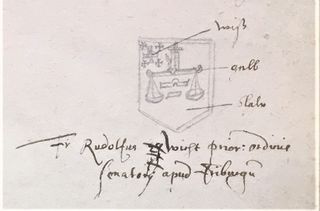 wiß
gelb
blaw
Fr Rudolfus Wift prior: ordinis
senator apud Friburgū